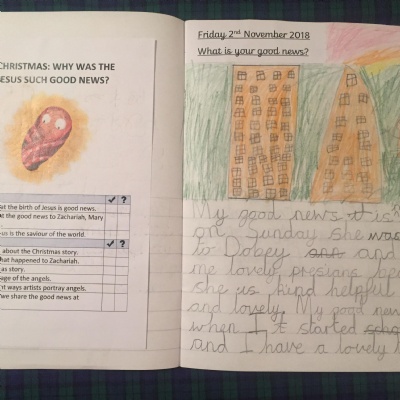 CHRISTMAS: WHY WAS THE
JESUS SUCH GOOD NEWS?
✓ ?
at the birth of Jesus is good news.
t the good news to Zachariah, Mary
us is the saviour of the world.
✓ ?
about the Christmas story.
hat happened to Zachariah.
as story.
sage of the angels.
nt ways artists portray angels.
we share the good news at
Friday 2nd November 2018
What is your good news?
My good news it is
on Sunday she was
to Dobey and
me lovely presians
she us kind helpful
and lovely. My good new
when I t started
and I have a lovely